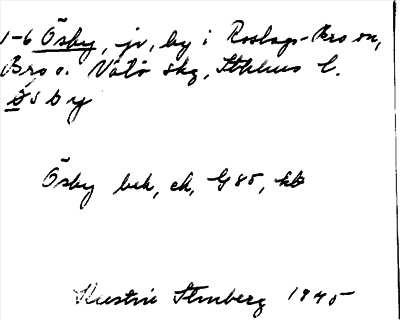 1-6 Ösby, jv, by i Roslags-Bro sn,
Bro o. Vätö skg, Sthlms l.
ö̀sby
Ösby beb, ek, G85, kb
Kerstin Stenberg 1945